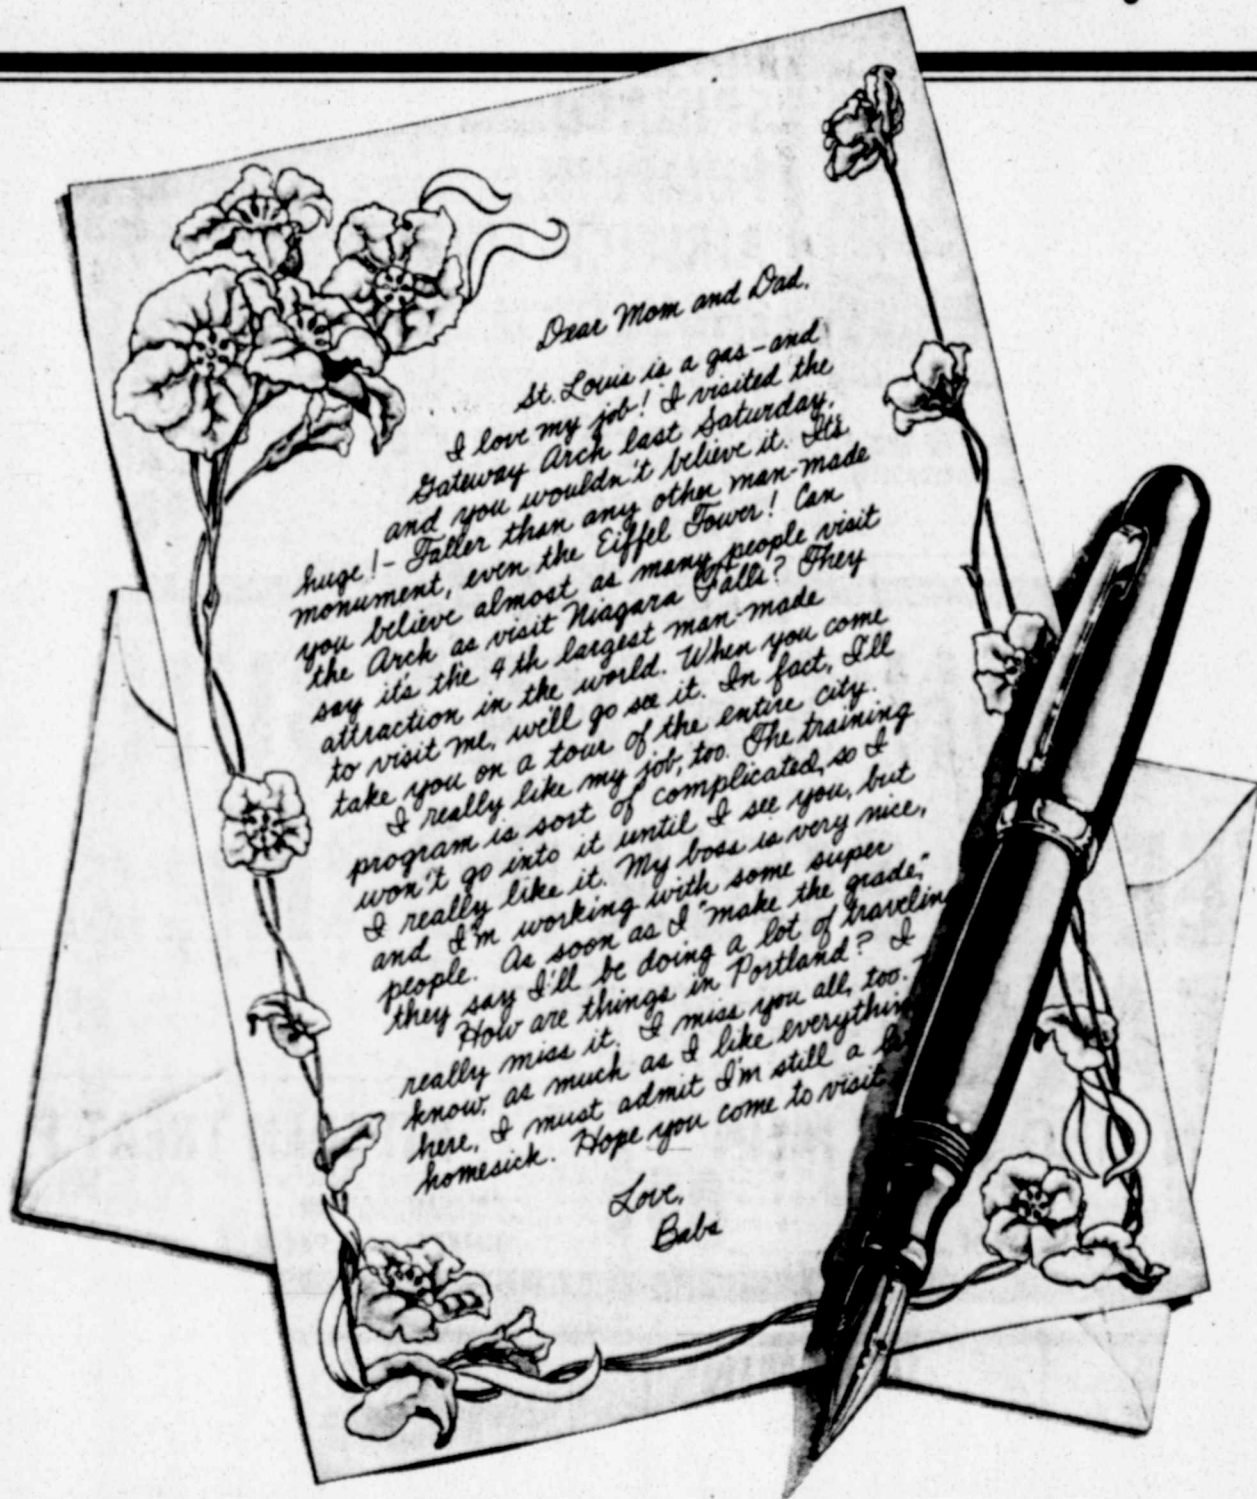 Dear Mom and Dad,
St. Louis is a gas – and
I love my job! I visited the
Gateway Arch last Saturday,
and you wouldn't believe it. Its
huge! – Taller than any other man-made
monument, even the Eiffel Tower! Can
you believe almost as many people visit
the Arch as visit Niagara Falls? They
say it's the 4th largest man-made
attraction in the world. When you come
to visit me, we'll go see it. In fact, I'll
take you on a tour of the entire city.
I really like my job, too. The training
program is sort of complicated, so I
won't go into it until I see you, but
I really like it. My boss is very nice,
and I'm working with some super
people. As soon as I "make the grade,"
they say I'll be doing a lot of travelin
How are things in Portland? I
really miss it. I miss you all, too.
know, as much as I like everythin
here, I must admit I'm still a
homesick. Hope you come to visit
Love,
Babs